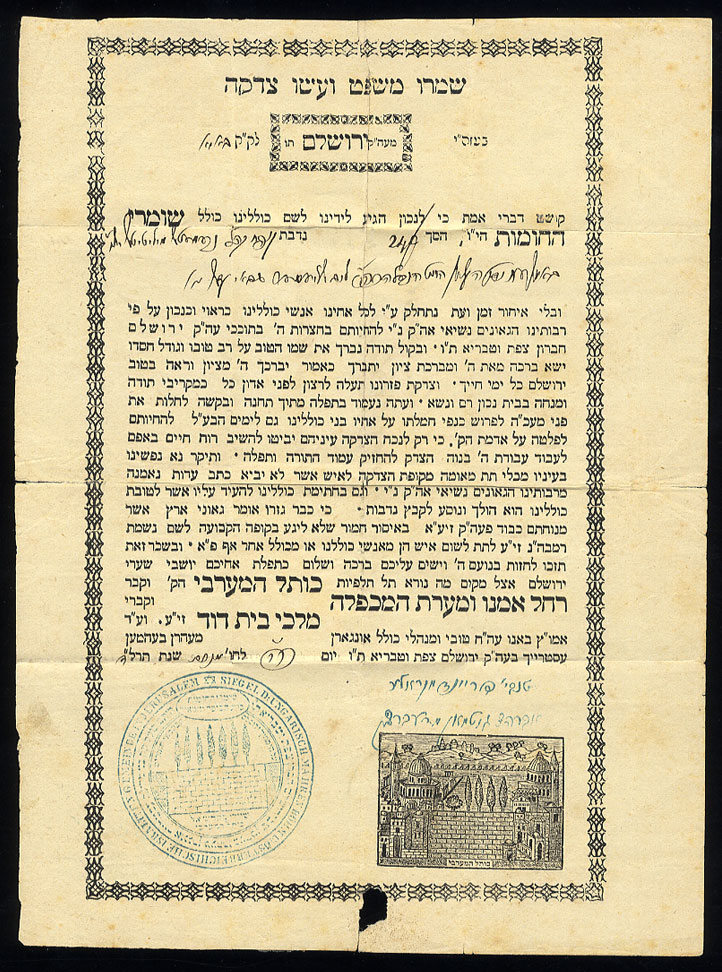 שמרו משפט ועשו צדקה
בעזהי"י מעה"ק ירושלם תו לק"ק
קושט דברי אמת כי לנכון הגיע לידינו לשם כוללינו כולל שומרי
החומות הי"ו, הסך 24 נדבת
ובלי איחור זמן ועת נתחלק ע"י לכל אחינו אנשי כוללינו כראוי וכנכון על פי
רבותינו הגאונים נשיאי אה"ק נ"י להחיותם בחצרות ה' בתוככי עה"ק ירושלם
חברון צפת וטבריא ת"ו · ובקול תודה נברך את שמו הטוב על רב טובו וגודל חסדו
ישא ברכה מאת ה' ומברכת ציון יתברך כאמור יברכך ה' מציון וראה בטוב
ירושלם כל ימי חייך · וצדקת פזרונו תעלה לרצון לפני אדון כל כמקריבי תודה
ומנחה בבית נכון רם ונשא · ועתה נעמוד בתפלה מתוך תחנה ובקשה לחלות את
פני מעכ"ה לפרוש כנפי חמלתו על אחיו בני כוללינו גם לימים הבע"ל להחיותם
לפלטה על אדמת הק'. כי רק לנכח הצדקה עיניהם יביטו להשיב רוח חיים באפם
לעבוד עבודת ה' בנוה הצדק להחזיק עמוד התורה ותפלה · ותיקר נא נפשינו
בעיניו מבלי תת מאומה מקופת הצדקה לאיש אשר לא יביא כתב עדות נאמנה
מרבותינו הגאונים נשיאי אה"ק נ"י · וגם בחתימת כוללינו להעיד עליו אשר לטובת
כוללינו הוא הולך ונוסע לקבץ נדבות · כי כבר גזרו אומר גאוני ארץ אשר
מנוחתם כבוד פעה"ק זיע"א באיסור חמור שלא ליגע בקופה הקבועה לשם נשמת
רמבה"נ זי"ע לתת לשום איש הן מאנשי כוללנו או מכולל אחר אף פ"א · ובשכר זאת
תזכו לחזות בנועם ה' וישים עליכם ברכה ושלום כתפלת אחיכם יושבי שערי
ירושלם אצל מקום מה נורא תל תלפיות כותל המערבי הק' וקבר
רחל אמנו ומערת המכפלה וקברי
מלכי בית דוד זי"ע. וע"ד
אמו"ץ באנו עה"ח טובי ומנהלי כולל אונגארן מעהרן בעהמען
עסטרייך בעה"ק ירושלם צפת וטבריא ת"ו יום לחו' שנת תרל"
JERUSALEM SIEGEL D. UNGARISCH MAHR. BÖHM. U. ÖSTERREICHISCHE ISRAELIT. GEMEINDE IN
כותל המערבי